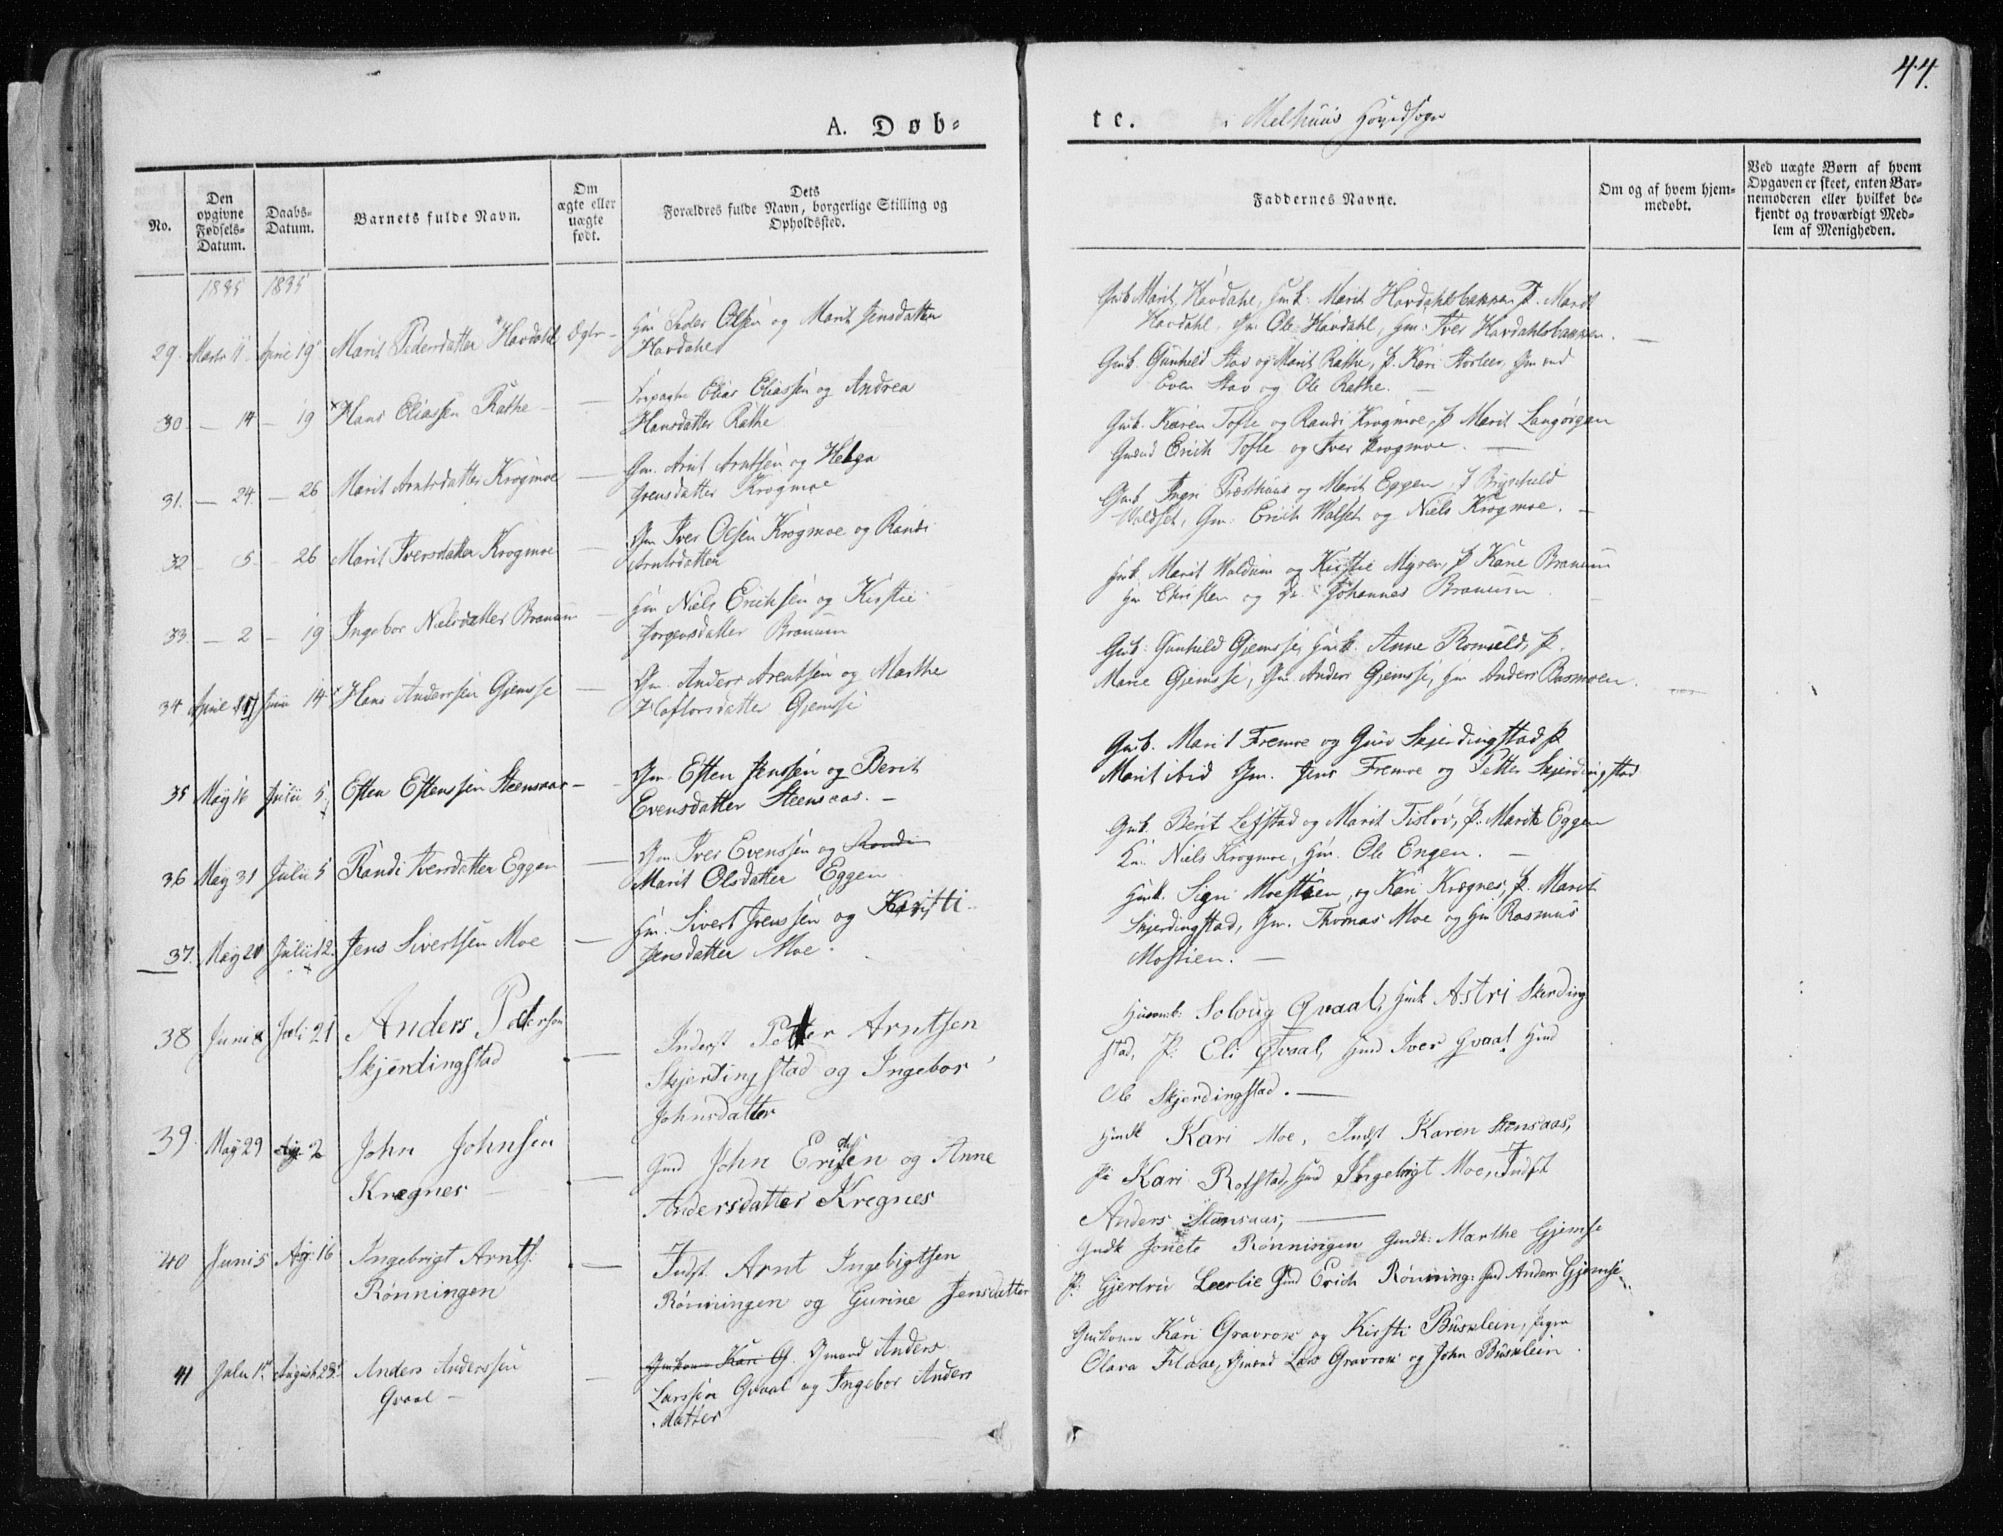 44.
A. Døb-
te.
i Melhuus Hovedsogn
No.
Den opgivne Fødsels-Datum.
Daabs-Datum.
Barnets fulde Navn.
Om ægte eller uægte født.
Dets Forældres fulde Navn, borgerlige Stilling og Opholdssted.
Faddernes Navne.
Om og af hvem hjem-medøbt.
Ved uægte Børn af hvem Opgaven er skeet, enten Bar-nemoderen eller hvilket be-kjendt og troværdigt Med-lem af Menigheden.
1835 1835
29. Marts 11 April 19 Marit Pedersdatter Havdahl Ægte - Hm Peder Olsen og Marit Jensdatter
Havdahl
Gmk Marit Havdahl, Hmk. Marit Havdahlsbakken P. Marit
Havdahl, Gm Ole Havdahl, Hm. Iver Havdahlsbakken.
30. - 14 - 19 Hans Eliassen Rathe - Elias Eliassen og Andrea
Hansdatter Rathe
Gmk. Gunhild Stav og Marit Rathe, P. Kari Storleer, Gmænd
Even Stav og Ole Rathe.
31. - 24. - 26 Marit Arntsdatter Krogmoe - Gm. Arnt Arntsen og Helga
Iversdatter Krogmoe
Gmk. Karen Tofte og Randi Krogmoe, P Marit Langørgen
Gmænd Erich Tofte og Iver Krogmoe.
32 - 5. - 26 Marit Iversdatter Krogmoe - Gm Iver Olsen Krogmoe og Randi
Arntsdatter
Gmk Ingri Præsthuus og Marit Eggen, P Brynhild
Waldset, Gm. Erich Walset og Niels Krogmoe.
33 - 2 - 19 Ingebor Nielsdatter Braaum - Hm Niels Erichsen og Kirstie
Jørgensdatter Braaum
Hmk. Marit Waldum og Kirstie Myren, P Kane Braaum
Hm Christen og Johannes Braaum
34 April 17 Juni 14 Hans Anderssen Gjemsse - Gm. Anders Arentsen og Marthe
Haftorsdatter Gjemse
Gmk. Gunhild Gjemsse, Hmk. Anne Romuld, P.
Marie Gjemse, Gm Anders Gjemsse, Hm Anders Basmoen.
35 May 16 Julii 5 Esten Estenssen Steensaas - Gm. Esten Jenssen og Berit
Evensdatter Steensaas. -
Gmk. Marit Fremoe og Guru Skjerdingstad P
Marit ibid Gm. Jens Fremoe og Petter Skjerdingstad
36 May 31 Julii 5 Randi Iversdatter Eggen - Gm Iver Evenssen og Randi
Marit Olsdatter Eggen
Gmk. Berit Lefstad og Marit Tisløv, P. Marit Eggen
Niels Krogmoe, Hm. Ole Engen. -
37. May 21 Julii 12. Jens Sivertsen Moe - Hm. Sivert Jenssen og Kristi
Jensdatter Moe.
Hmk. Sigri Moestien, og Kari Krægnes, P. Marit
Skjerdingstad, Gm. Thomas Moe og Hm Rasmus
Mostien. -
38 Juni Juli 21 Anders Peterson
Skjerdingstad - Inderst Petter Arntsen
Skjerdingstad og Ingebor
Johnsdatter
Huusmk: Solvug Qvaal, Hmk Astri Skerding
stad, P. Eli Qvaal, Hmd Iver Qvaal Hmd
Ole Skjerdingstad. -
39. May 29 Aug 2 John Johnsen
Kregnes - Gmd John Erichsen og Anne
Andersdatter Kregnes
Hmdk Kari Moe, Indst Karen Stensaas,
P: Kari Rofstad, Hmd Ingebrigt Moe, Indst
Anders Stensaas, -
40 Juni 5 Aug. 16 Ingebrigt Arnts.
Rønningen - Indst. Arnt Ingebrigtsen
Rønningen og Gurine Jensdatter
Gmdk Jonete Rønningen Gmdk: Marthe Gjemse
P. Gjertru Leerlie Gmd Erich Rønning. Gmd Anders Gjemse
41 Juli 1 August 28. Anders Anderssen
Qvaal - Gmkone Kari G. Gmand Anders
Larssen Qvaal og Ingebor Anders
datter
Gmkone Kari Gravrok og Kirsti Busklein, Pigen
Olava Flaae, Gmænd Lars Gravrok og John Busklein.